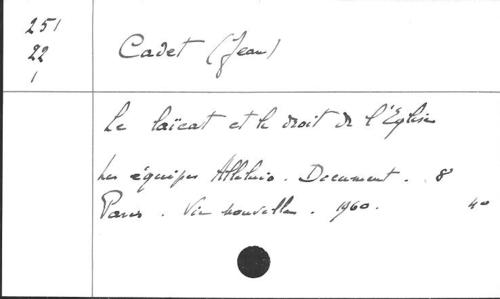 251
22
1
Cadet (Jean)
Le laïcat et le droit de l'Eglise
Les équipes Alleluia. Document. 8°
Paris. Vie nouvelle. 1960. 40